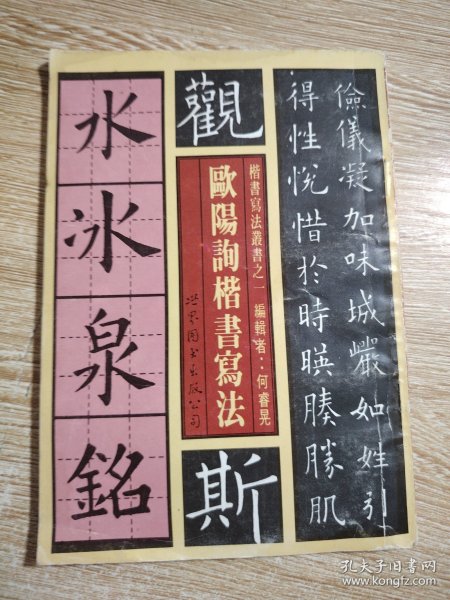 儉儀凝加味城嚴如姓引
得性悅惜於時暎腠勝肌
觀
楷書寫法叢書之一 編輯者：何睿晃
歐陽詢楷書寫法
世界图书出版公司
斯
水
冰
泉
銘
孔夫子旧书网
www.kongfz.com